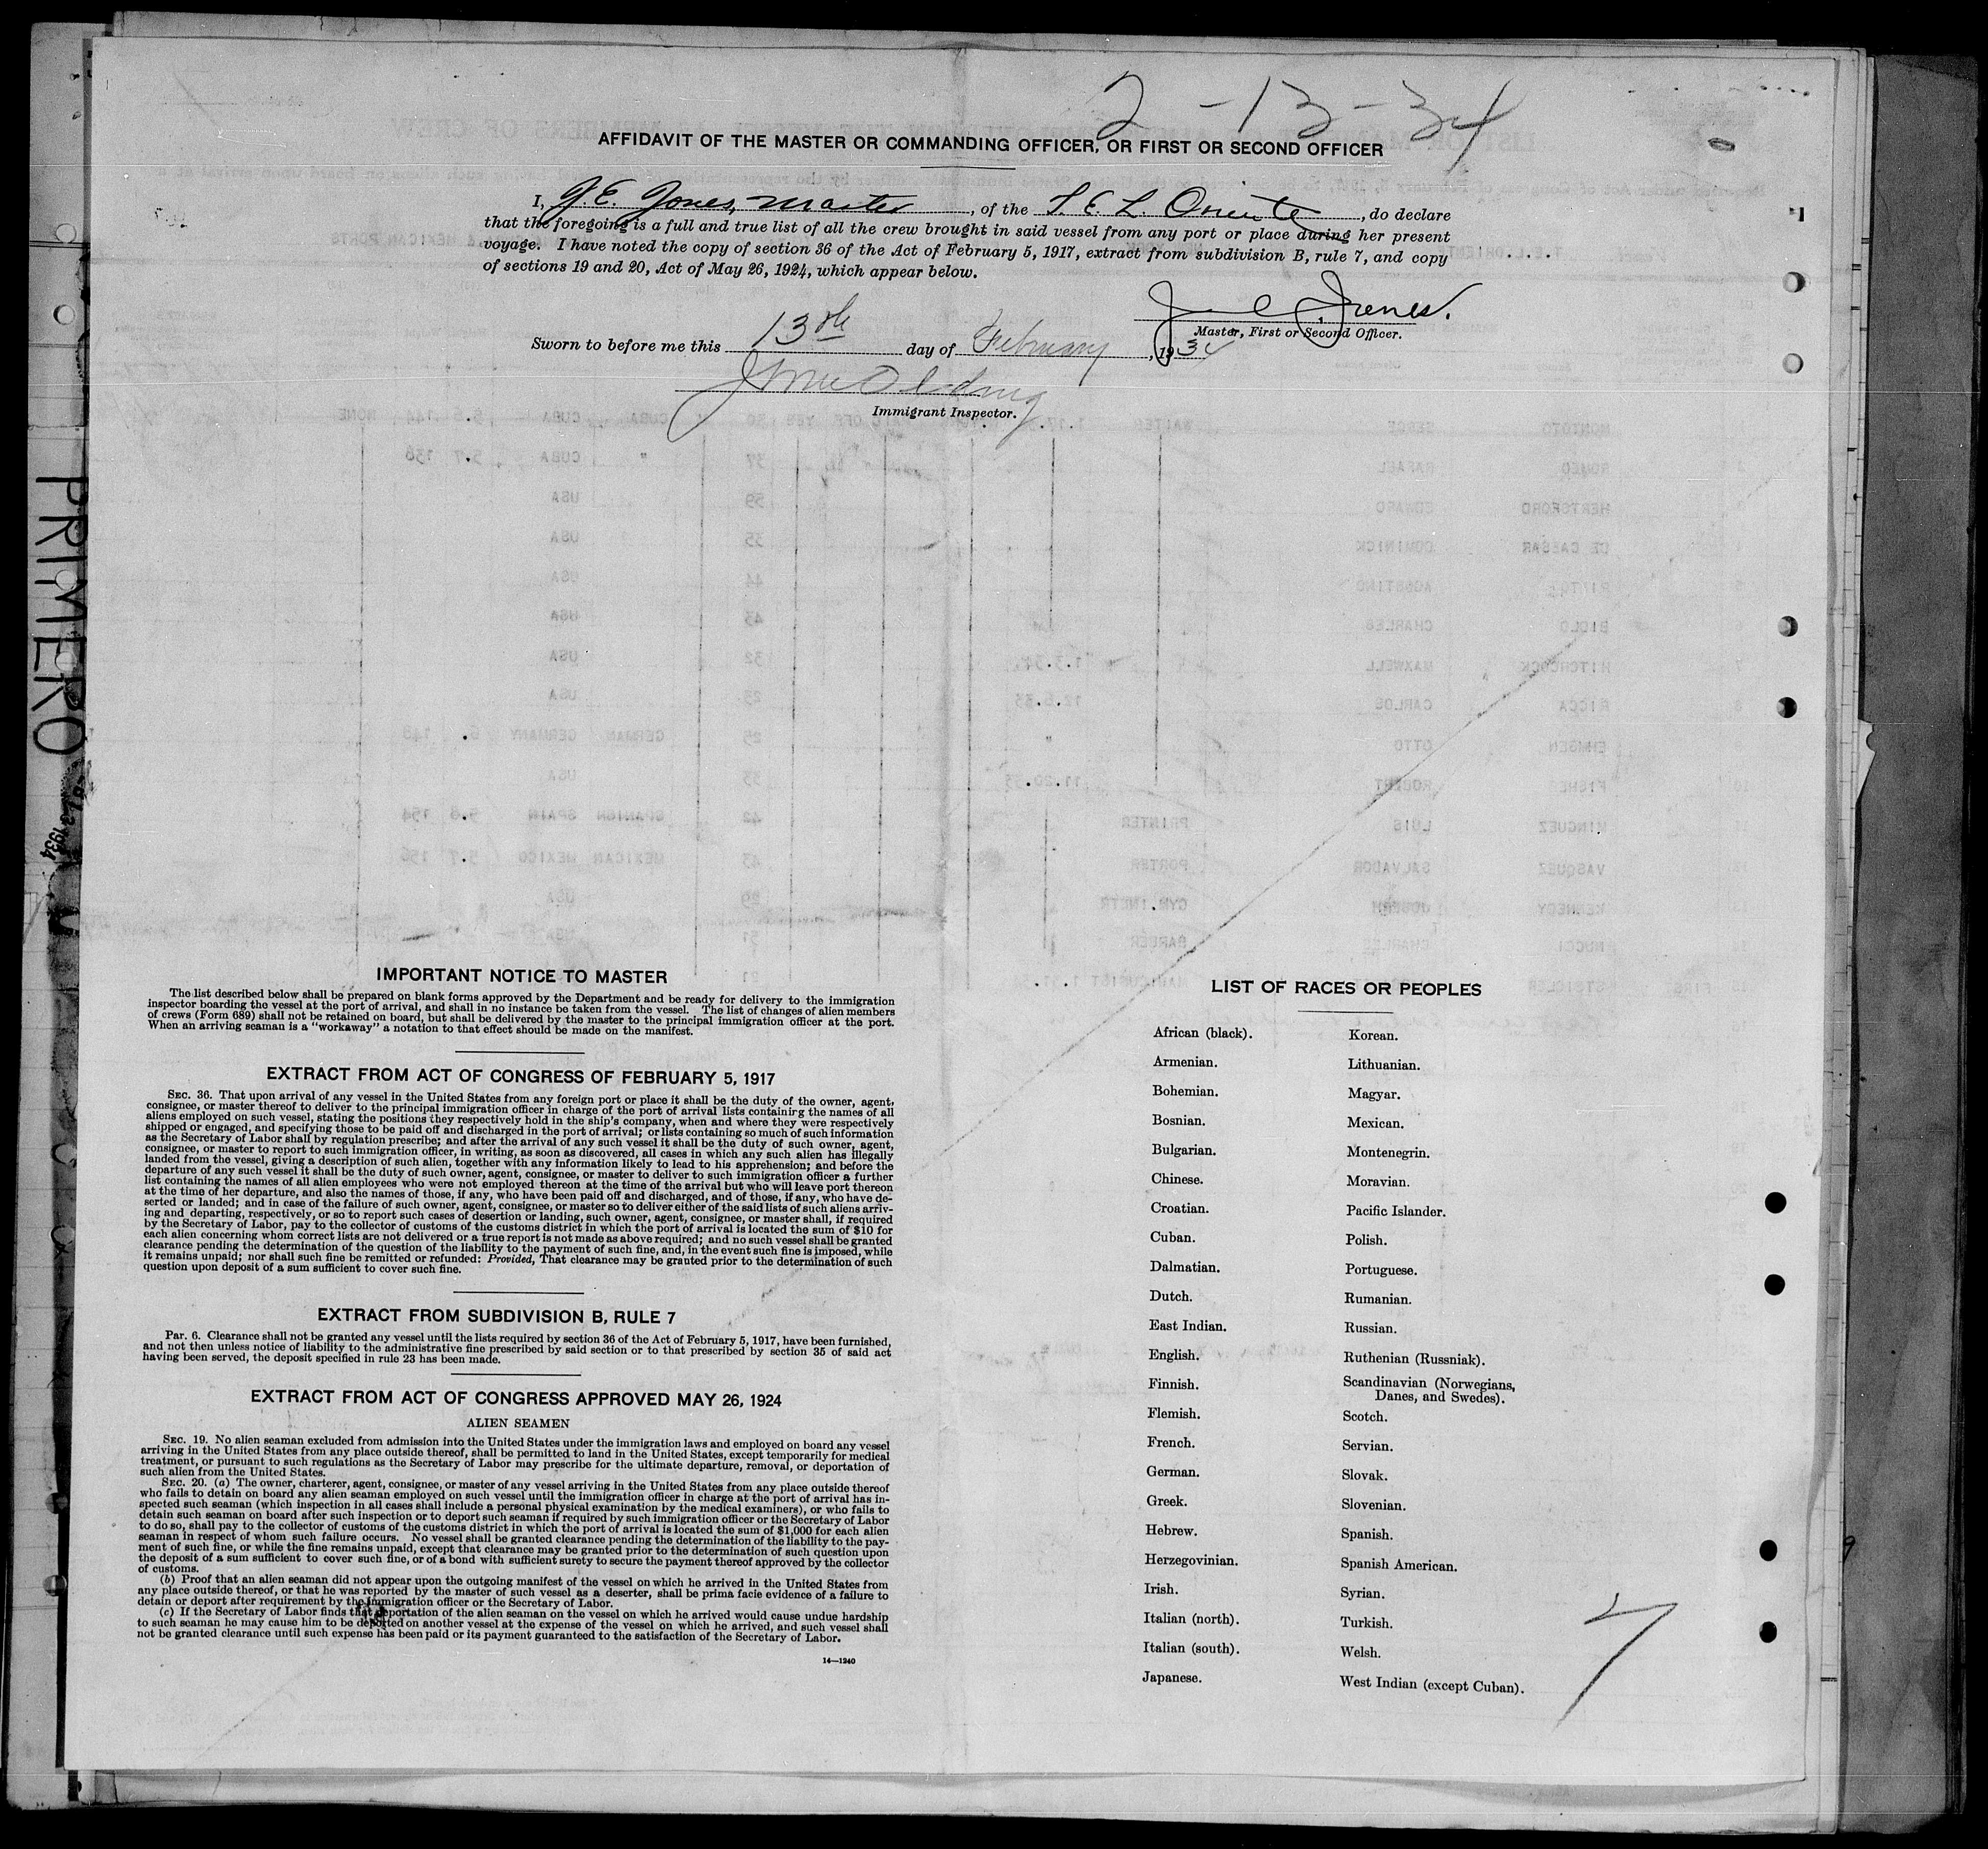 2-13-34
AFFIDAVIT OF THE MASTER OR COMMANDING OFFICER, OR FIRST OR SECOND OFFICER
I, J. E. Jones, Master, of the T. E. L. Oriente, do declare
that the foregoing is a full and true list of all the crew brought in said vessel from any port or place during her present
voyage. I have noted the copy of section 36 of the Act of February 5, 1917, extract from subdivision B, rule 7, and copy
of sections 19 and 20, Act of May 26, 1924, which appear below.
Jones.
Master, First or Second Officer.
Sworn to before me this 13th day of February, 1934
Immigrant Inspector.
PRIMERO
IMPORTANT NOTICE TO MASTER
The list described below shall be prepared on blank forms approved by the Department and be ready for delivery to the immigration
inspector boarding the vessel at the port of arrival, and shall in no instance be taken from the vessel. The list of changes of alien members
of crews (Form 689) shall not be retained on board, but shall be delivered by the master to the principal immigration officer at the port.
When an arriving seaman is a "workaway" a notation to that effect should be made on the manifest.
EXTRACT FROM ACT OF CONGRESS OF FEBRUARY 5, 1917
SEC. 36. That upon arrival of any vessel in the United States from any foreign port or place it shall be the duty of the owner, agent,
consignee, or master thereof to deliver to the principal immigration officer in charge of the port of arrival lists containing the names of all
aliens employed on such vessel, stating the positions they respectively hold in the ship's company, when and where they were respectively
shipped or engaged, and specifying those to be paid off and discharged in the port of arrival; or lists containing so much of such information
as the Secretary of Labor shall by regulation prescribe; and after the arrival of any such vessel it shall be the duty of such owner, agent,
consignee, or master to report to such immigration officer, in writing, as soon as discovered, all cases in which any such alien has illegally
landed from the vessel, giving a description of such alien, together with any information likely to lead to his apprehension; and before the
departure of any such vessel it shall be the duty of such owner, agent, consignee, or master to deliver to such immigration officer a further
list containing the names of all alien employees who were not employed thereon at the time of the arrival but who will leave port thereon
at the time of her departure, and also the names of those, if any, who have been paid off and discharged, and of those, if any, who have de-
serted or landed; and in case of the failure of such owner, agent, consignee, or master so to deliver either of the said lists of such aliens arriv-
ing and departing, respectively, or so to report such cases of desertion or landing, such owner, agent, consignee, or master shall, if required
by the Secretary of Labor, pay to the collector of customs of the customs district in which the port of arrival is located the sum of $10 for
each alien concerning whom correct lists are not delivered or a true report is not made as above required; and no such vessel shall be granted
clearance pending the determination of the question of the liability to the payment of such fine, and, in the event such fine is imposed, while
it remains unpaid; nor shall such fine be remitted or refunded: Provided, That clearance may be granted prior to the determination of such
question upon deposit of a sum sufficient to cover such fine.
EXTRACT FROM SUBDIVISION B, RULE 7
PAR. 6. Clearance shall not be granted any vessel until the lists required by section 36 of the Act of February 5, 1917, have been furnished,
and not then unless notice of liability to the administrative fine prescribed by said section or to that prescribed by section 35 of said act
having been served, the deposit specified in rule 23 has been made.
EXTRACT FROM ACT OF CONGRESS APPROVED MAY 26, 1924
ALIEN SEAMEN
SEC. 19. No alien seaman excluded from admission into the United States under the immigration laws and employed on board any vessel
arriving in the United States from any place outside thereof, shall be permitted to land in the United States, except temporarily for medical
treatment, or pursuant to such regulations as the Secretary of Labor may prescribe for the ultimate departure, removal, or deportation of
such alien from the United States.
SEC. 20. (a) The owner, charterer, agent, consignee, or master of any vessel arriving in the United States from any place outside thereof
who fails to detain on board any alien seaman employed on such vessel until the immigration officer in charge at the port of arrival has in-
spected such seaman (which inspection in all cases shall include a personal physical examination by the medical examiners), or who fails to
detain such seaman on board after such inspection or to deport such seaman if required by such immigration officer or the Secretary of Labor
to do so, shall pay to the collector of customs of the customs district in which the port of arrival is located the sum of $1,000 for each alien
seaman in respect of whom such failure occurs. No vessel shall be granted clearance pending the determination of the liability to the pay-
ment of such fine, or while the fine remains unpaid, except that clearance may be granted prior to the determination of such question upon
the deposit of a sum sufficient to cover such fine, or of a bond with sufficient surety to secure the payment thereof approved by the collector
of customs.
(b) Proof that an alien seaman did not appear upon the outgoing manifest of the vessel on which he arrived in the United States from
any place outside thereof, or that he was reported by the master of such vessel as a deserter, shall be prima facie evidence of a failure to
detain or deport after requirement by the immigration officer or the Secretary of Labor.
(c) If the Secretary of Labor finds that deportation of the alien seaman on the vessel on which he arrived would cause undue hardship
to such seaman he may cause him to be deported on another vessel at the expense of the vessel on which he arrived, and such vessel shall
not be granted clearance until such expense has been paid or its payment guaranteed to the satisfaction of the Secretary of Labor.
14—1240
LIST OF RACES OR PEOPLES
African (black).
Armenian.
Bohemian.
Bosnian.
Bulgarian.
Chinese.
Croatian.
Cuban.
Dalmatian.
Dutch.
East Indian.
English.
Finnish.
Flemish.
French.
German.
Greek.
Hebrew.
Herzegovinian.
Irish.
Italian (north).
Italian (south).
Japanese.
Korean.
Lithuanian.
Magyar.
Mexican.
Montenegrin.
Moravian.
Pacific Islander.
Polish.
Portuguese.
Rumanian.
Russian.
Ruthenian (Russniak).
Scandinavian (Norwegians,
Danes, and Swedes).
Scotch.
Servian.
Slovak.
Slovenian.
Spanish.
Spanish American.
Syrian.
Turkish.
Welsh.
West Indian (except Cuban).
7